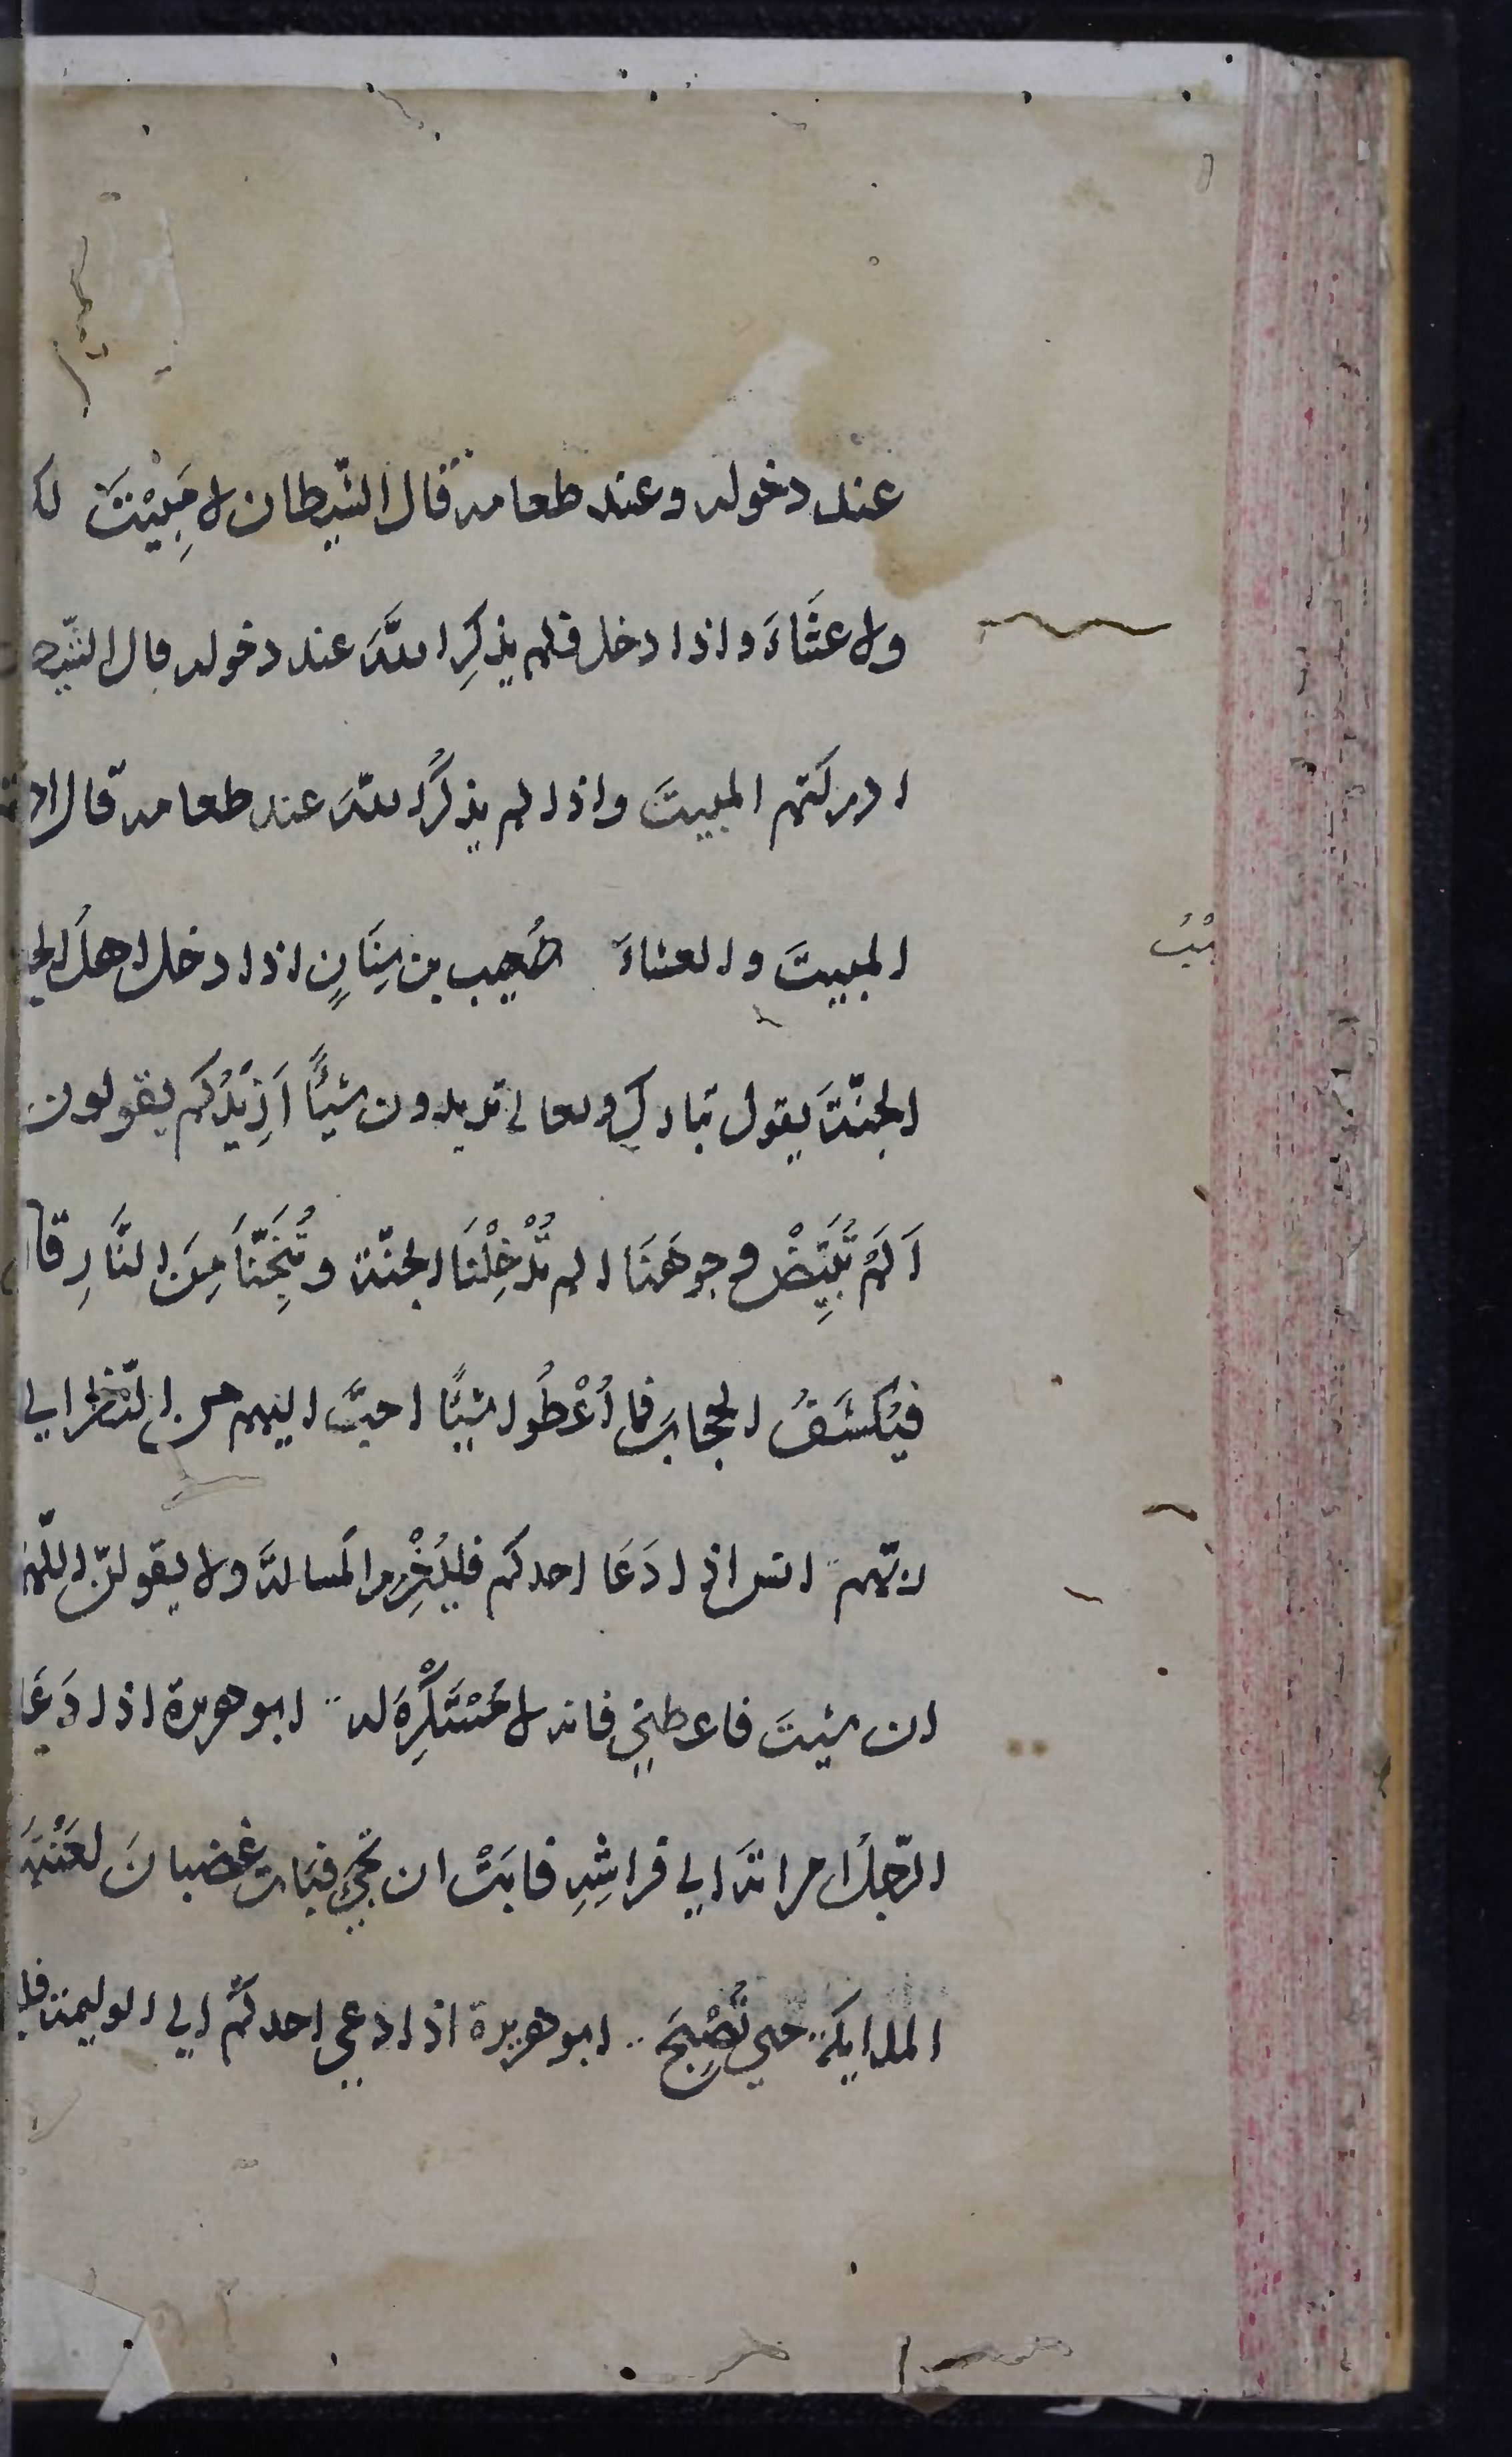 عند دخوله وعند طعامه قال الشّيطان لا مَبِيْتَ لكم
ولا عشَاءَ واذا دخل فلم يذكرِ اللهَ عند دخوله قال الشّيطان
ادركتم المبيتَ واذا لم يذكرُ اللهَ عند طعامه قال ادركتم
المبيتَ والعشاءَ صُهيب بن سِنَانٍ اذا دخل اهلُ الجنة
الجنّةَ يقول تبارك وتعالى تريدون شيئًا اَزِيْدُكم يقولون
اَلَمْ تُبَيِّضْ وجوهَنَا الم تُدْخِلْنَا الجنّة وتُنَجِّنَا مِنَ النَّارِ قال
فيُكشَفُ الحجاب فما اُعْطُوا شيئًا احبَّ اليهم من النّظر الي
ربّهم انس اذا دَعَا احدكم فليُعْزِم المَسالةَ ولا يقولنّ اللّهم
ان شيتَ فاعطني فانه لا مُسْتَكْرِهَ له ابو هريرة اذا دَعَا
الرّجلُ امراتَه الي فراشِهِ فابَتْ ان تجيَ فبَات غضبانَ لعَنْتَهَا
الملايكة حتي تُصْبِحَ ابو هريرة اذا دعي احدكُم الي الوليمة فليا